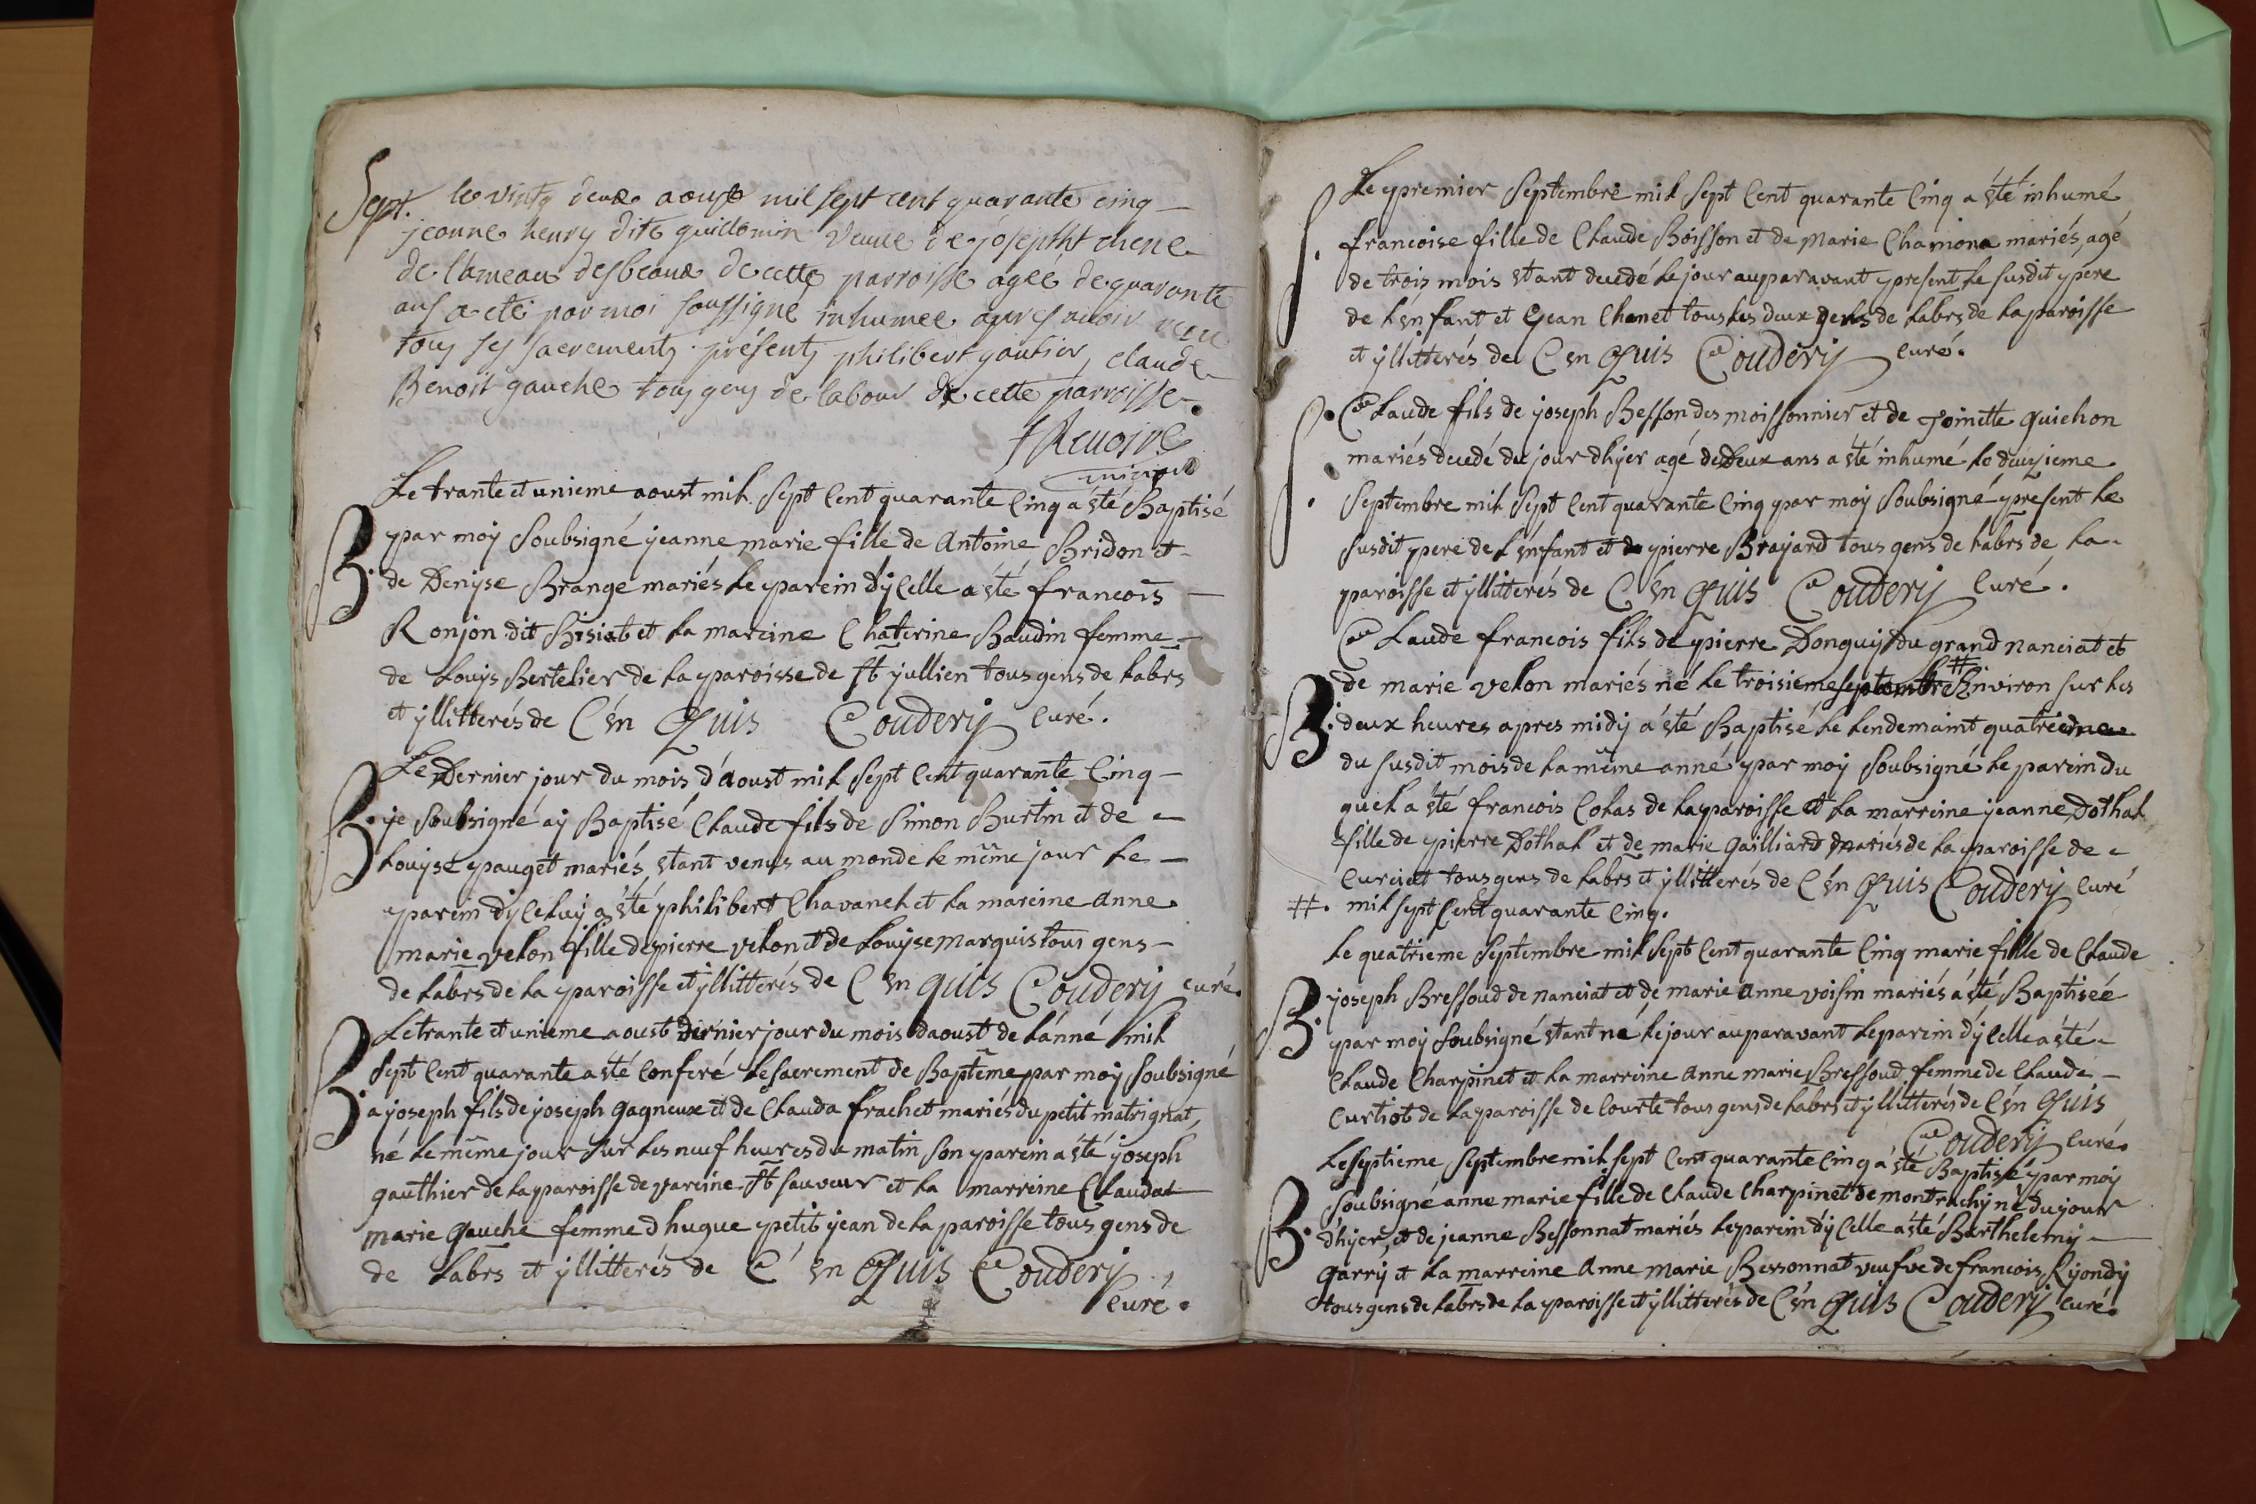 Sept. le vinty deux aoust mil sept cent quarante cinq
jeanne henry dite guillomin veuve de josepht chene
de l'ameau desbeaux de cette parroisse ageé de quarante
ans a eté par moi soussigné inhumee apres avoir receu
tous ses sacrements présents philibert gautier, claude
Benoit gauche tous gens de labour de cette parroisse.
Le trante et unieme aoust mil sept Cent quarante Cinq a été Baptisé
B. par moy Soubsigné jeanne marie fille de Antoine Bridon et
de Denyse Brange mariés Le parein dyCelle a été francois
Ronjon dit et La mareine Chaterine Baudin femme
de Louys Bertelier de La paroisse de st jullien tous gens de Labrs
et yllitterés de Cen Quis Couderij Curé.
Le Dernier jour du mois d'Aoust mil Sept Cent quarante Cinq
B. je Soubsigné ay Baptisé Claude fils de Simon Burtin et de
Louyse pauget mariés, etant venus au monde Le même jour Le
parein dyCeluy a été philibert Chavanel et La mareine Anne
marie velon fille de pierre velon et de Louyse marquis tous gens
de Labrs de La paroisse et yllitterés de Cen quis Couderij Curé.
Le trante et unieme aoust Dernier jour du mois daoust de Lánné mil
Sept Cent quarante a été Conferé Le Sacrement de Baptême par moy Soubsigné
B. a joseph fils de joseph gagneux et de Clauda frachet mariés du petit matrignat,
né Le même jour sur Les neuf heures du matin Son parein a été joseph
gauthier de La paroisse de vareine st sauveur et La marreine Clauda
marie gauche femme d hugue petit jean de La paroisse tous gens de
de Labrs et yllitterés de C en Quis Couderij
Curé.
S. Le premier Septembre mil Sept Cent quarante Cinq a été inhumé
francoise fille de Claude Boisson et de Marie Chamona mariés, agé
de trois mois etant decedé Le jour auparavant present Le susdit pere
de L'enfant et Jean Chanet tous Les deux gens de Labrs de La paroisse
et yllitterés de Cen Quis Couderij Curé.
S. Claude fils de joseph Besson des moissonnier et de Toinette guichon
mariés decedé du jour dhyer agé de Deux ans a été inhumé Le deuxieme
Septembre mil Sept Cent quarante Cinq par moy Soubsigné present Le
susdit pere de L'enfant et de pierre Brayard tous gens de Labrs de La
paroisse et yllitterés de Cen Quis Couderij Curé.
Claude francois fils de pierre Donguy du grand nanciat et
de marie velon mariés né Le troisieme septembre # Environ sur Les
B. deux heures apres midy a été Baptisé Le Lendemaint quatrieme
du susdit mois de La même anné par moy Soubsigné Le parein du
quel a été francois Colas de La paroisse et La marreine jeanne Dothal
fille de pierre Dothal et de marie gailliard mariés de La paroisse de
Curciat tous gens de Labrs et yllitterés de Cen Quis Couderij Curé
#. mil sept Cent quarante Cinq.
Le quatrieme Septembre mil Sept Cent quarante Cinq marie fille de Claude
B. joseph Bressoud de nanciat et de marie Anne voisin mariés a été Baptiseé
par moy Soubsigné etant né Le jour auparavant Le parein dyCelle a été
Claude Charpinet et La marreine Anne marie Bressoud femme de Claude
Curtiot de La paroisse de Courte tous gens de Labrs et yllitterés de Cen Quis
Couderij Curé.
Le Septieme Septembre mil Sept Cent quarante Cinq a été Baptisé par moy
B. Soubsigné anne marie fille de Claude Charpinet de montrachy né du jour
dhyer, et de jeanne Bessonnat mariés Le parein dyCelle a été Barthelemy
garry et La marreine Anne marie Bessonnat veufve de francois Ryondy
tous gens de Labrs de La paroisse et yllitterés de Cen Quis Couderij Curé.